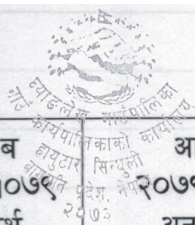 घ्याङलेख गाउँपालिका
गाउँ कार्यपालिकाको कार्यालय
हायुटार सिन्धुली
बागमति प्रदेश, नेपाल
२०७३
ब
आ
०७९
२०७९